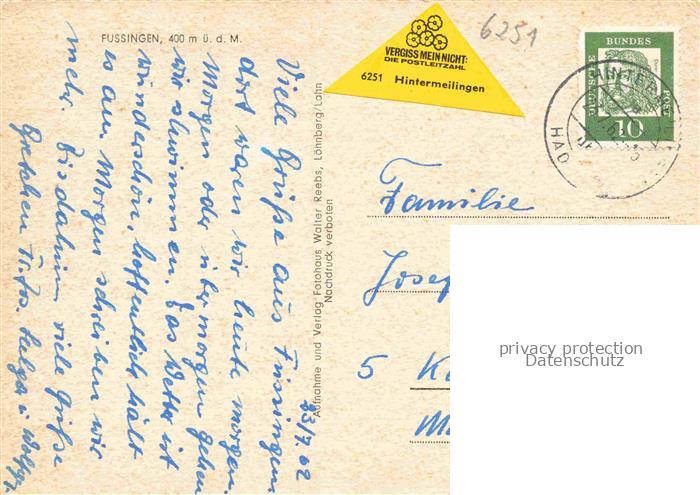 FUSSINGEN, 400 m ü. d. M.
Viele Grüße aus Fussingen
dort waren wir heute morgen.
Morgen oder übermorgen gehen
wir schwimmen. Das Wetter ist
wunderschön, hoffentlich hält
es an. Morgen schreiben wir
mehr. Bis dahin viele Grüße
Gretchen Helga u.
23/7.62
Aufnahme und Verlag Fotohaus Walter Reebs, Löhnberg/Lahn
Nachdruck verboten
VERGISSMEINNICHT:
DIE POSTLEITZAHL
6251 Hintermeilingen
6251
DEUTSCHE
BUNDES
POST
10
HINTER
HAD
Familie
Josef
5 K
privacy protection
Datenschutz